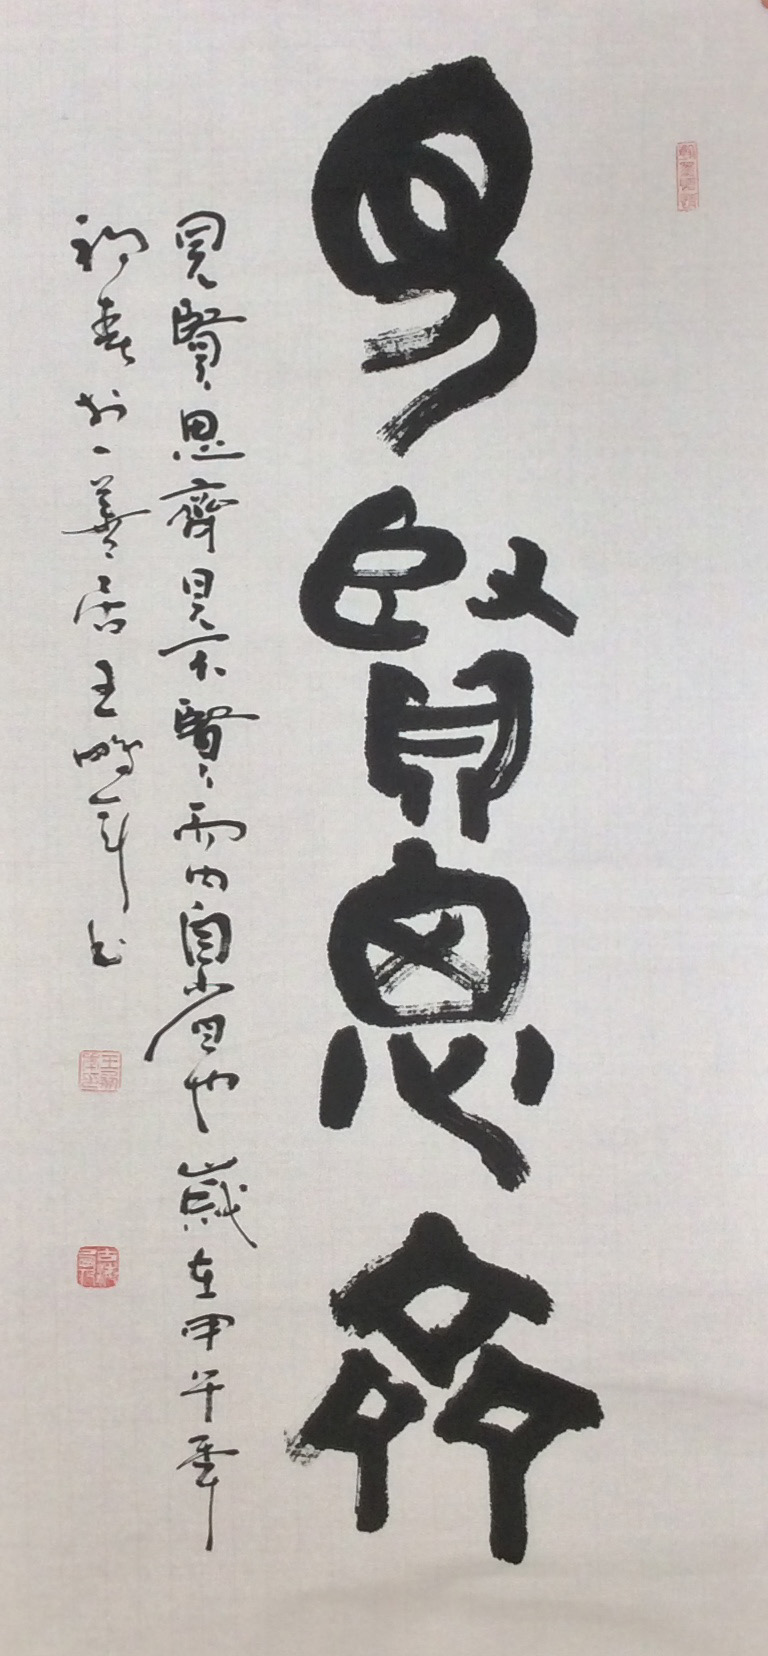 見賢思齊
見賢思齊見不賢而内自省也歲在甲午年
初春於一善居王鵬年書